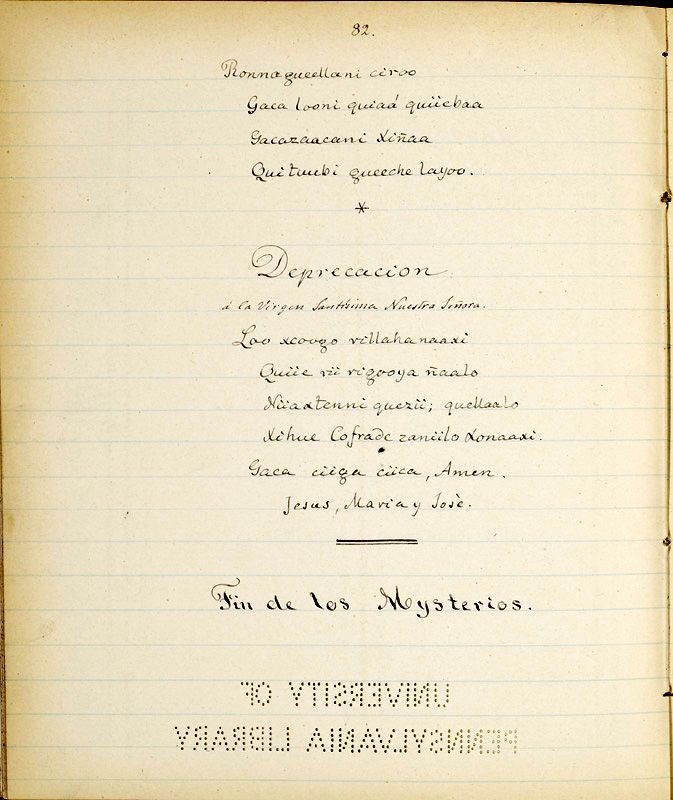 82.
Ronnagueellani ciroo
Gaca looni quiaá quiiebaa
Gacazaacani xiñaa
Quituubi queeche layoo.
Deprecacion
á la Virgen Santísima Nuestra Señora.
Loo xcoogo rillahanaaxi
Quiie rii rigooya ñaalo
Niiaxtenni quezii; quellaalo
Xihue Cofrade zaniilo Xonaaxi.
Gaca ciiga ciica, Amen.
Jesus, Maria y Josè.
Fin de los Mysterios.
UNIVERSITY OF
PENNSYLVANIA LIBRARY